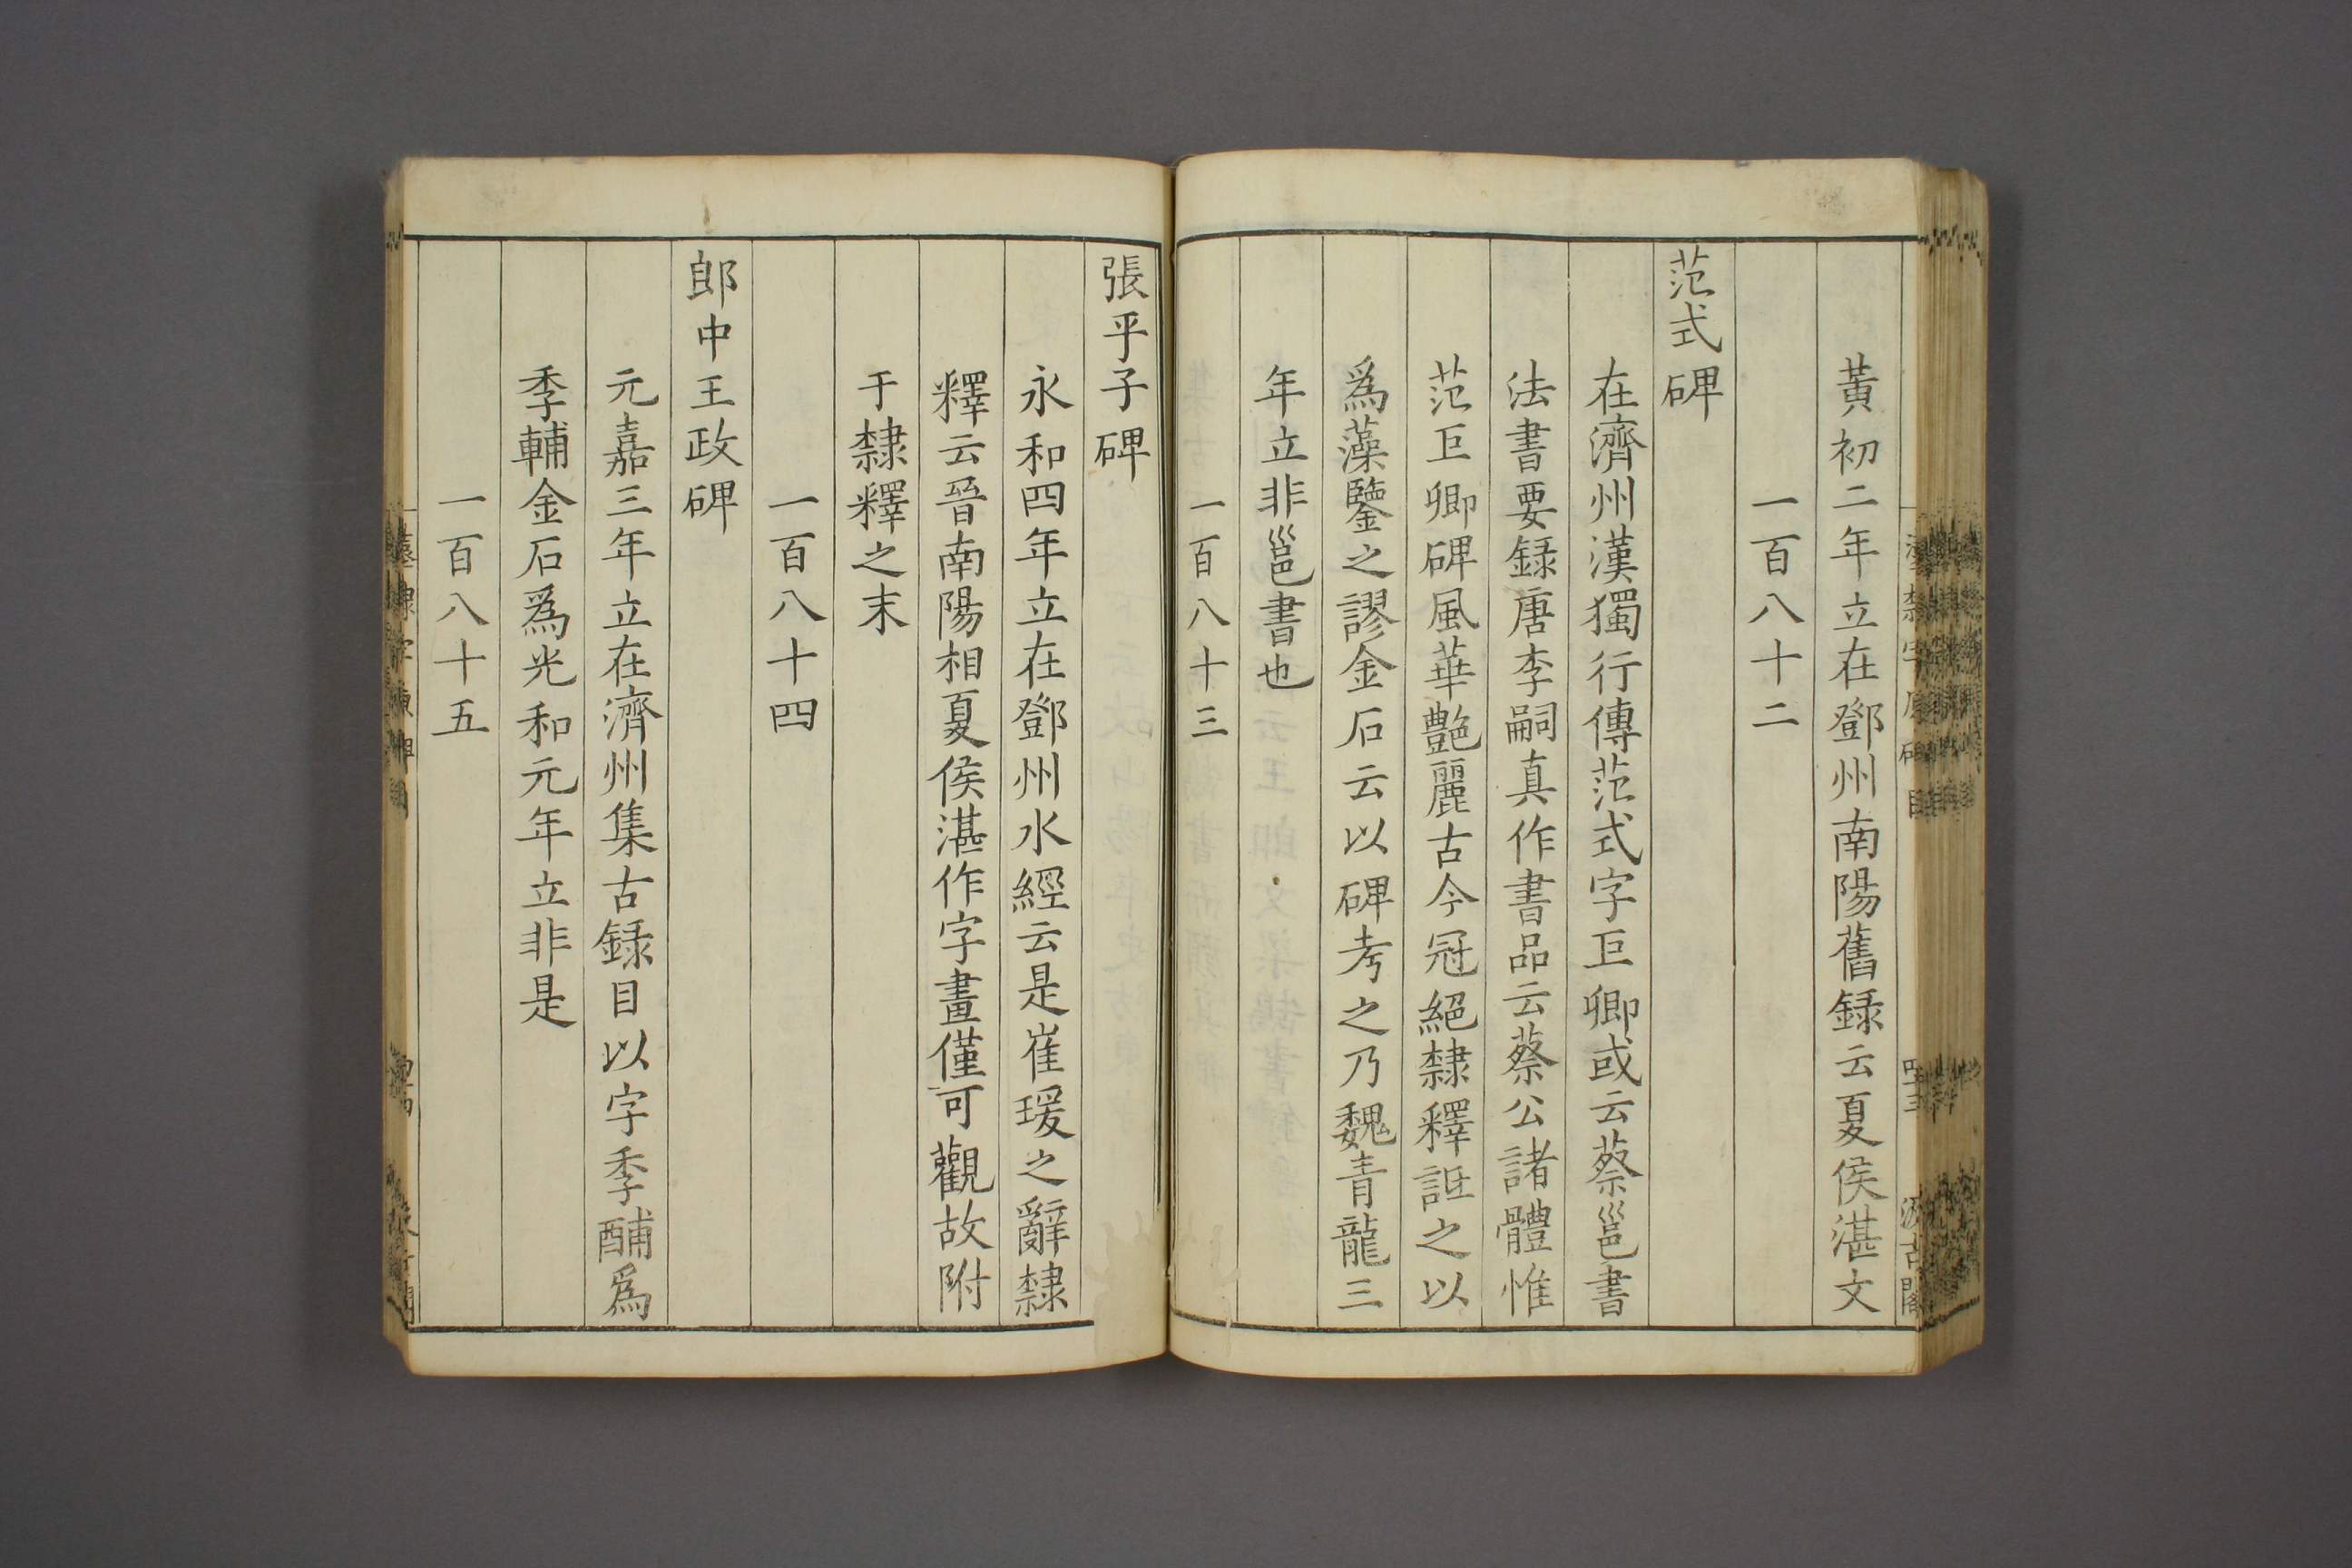 黃初二年立在鄧州南陽舊録云夏侯湛文
一百八十二
范式碑
在濟州漢獨行傳范式字巨卿或云蔡邕書
法書要録唐李嗣真作書品云蔡公諸體惟
范巨卿碑風華艶麗古今冠絕隸釋詆之以
爲藻鑒之謬金石云以碑考之乃魏青龍三
年立非邕書也
一百八十三
張平子碑
永和四年立在鄧州水經云是崔瑗之辭隸
釋云晉南陽相夏侯湛作字畫僅可觀故附
于隸釋之末
一百八十四
郎中王政碑
元嘉三年立在濟州集古録目以字季酺爲
季輔金石爲光和元年立非是
一百八十五